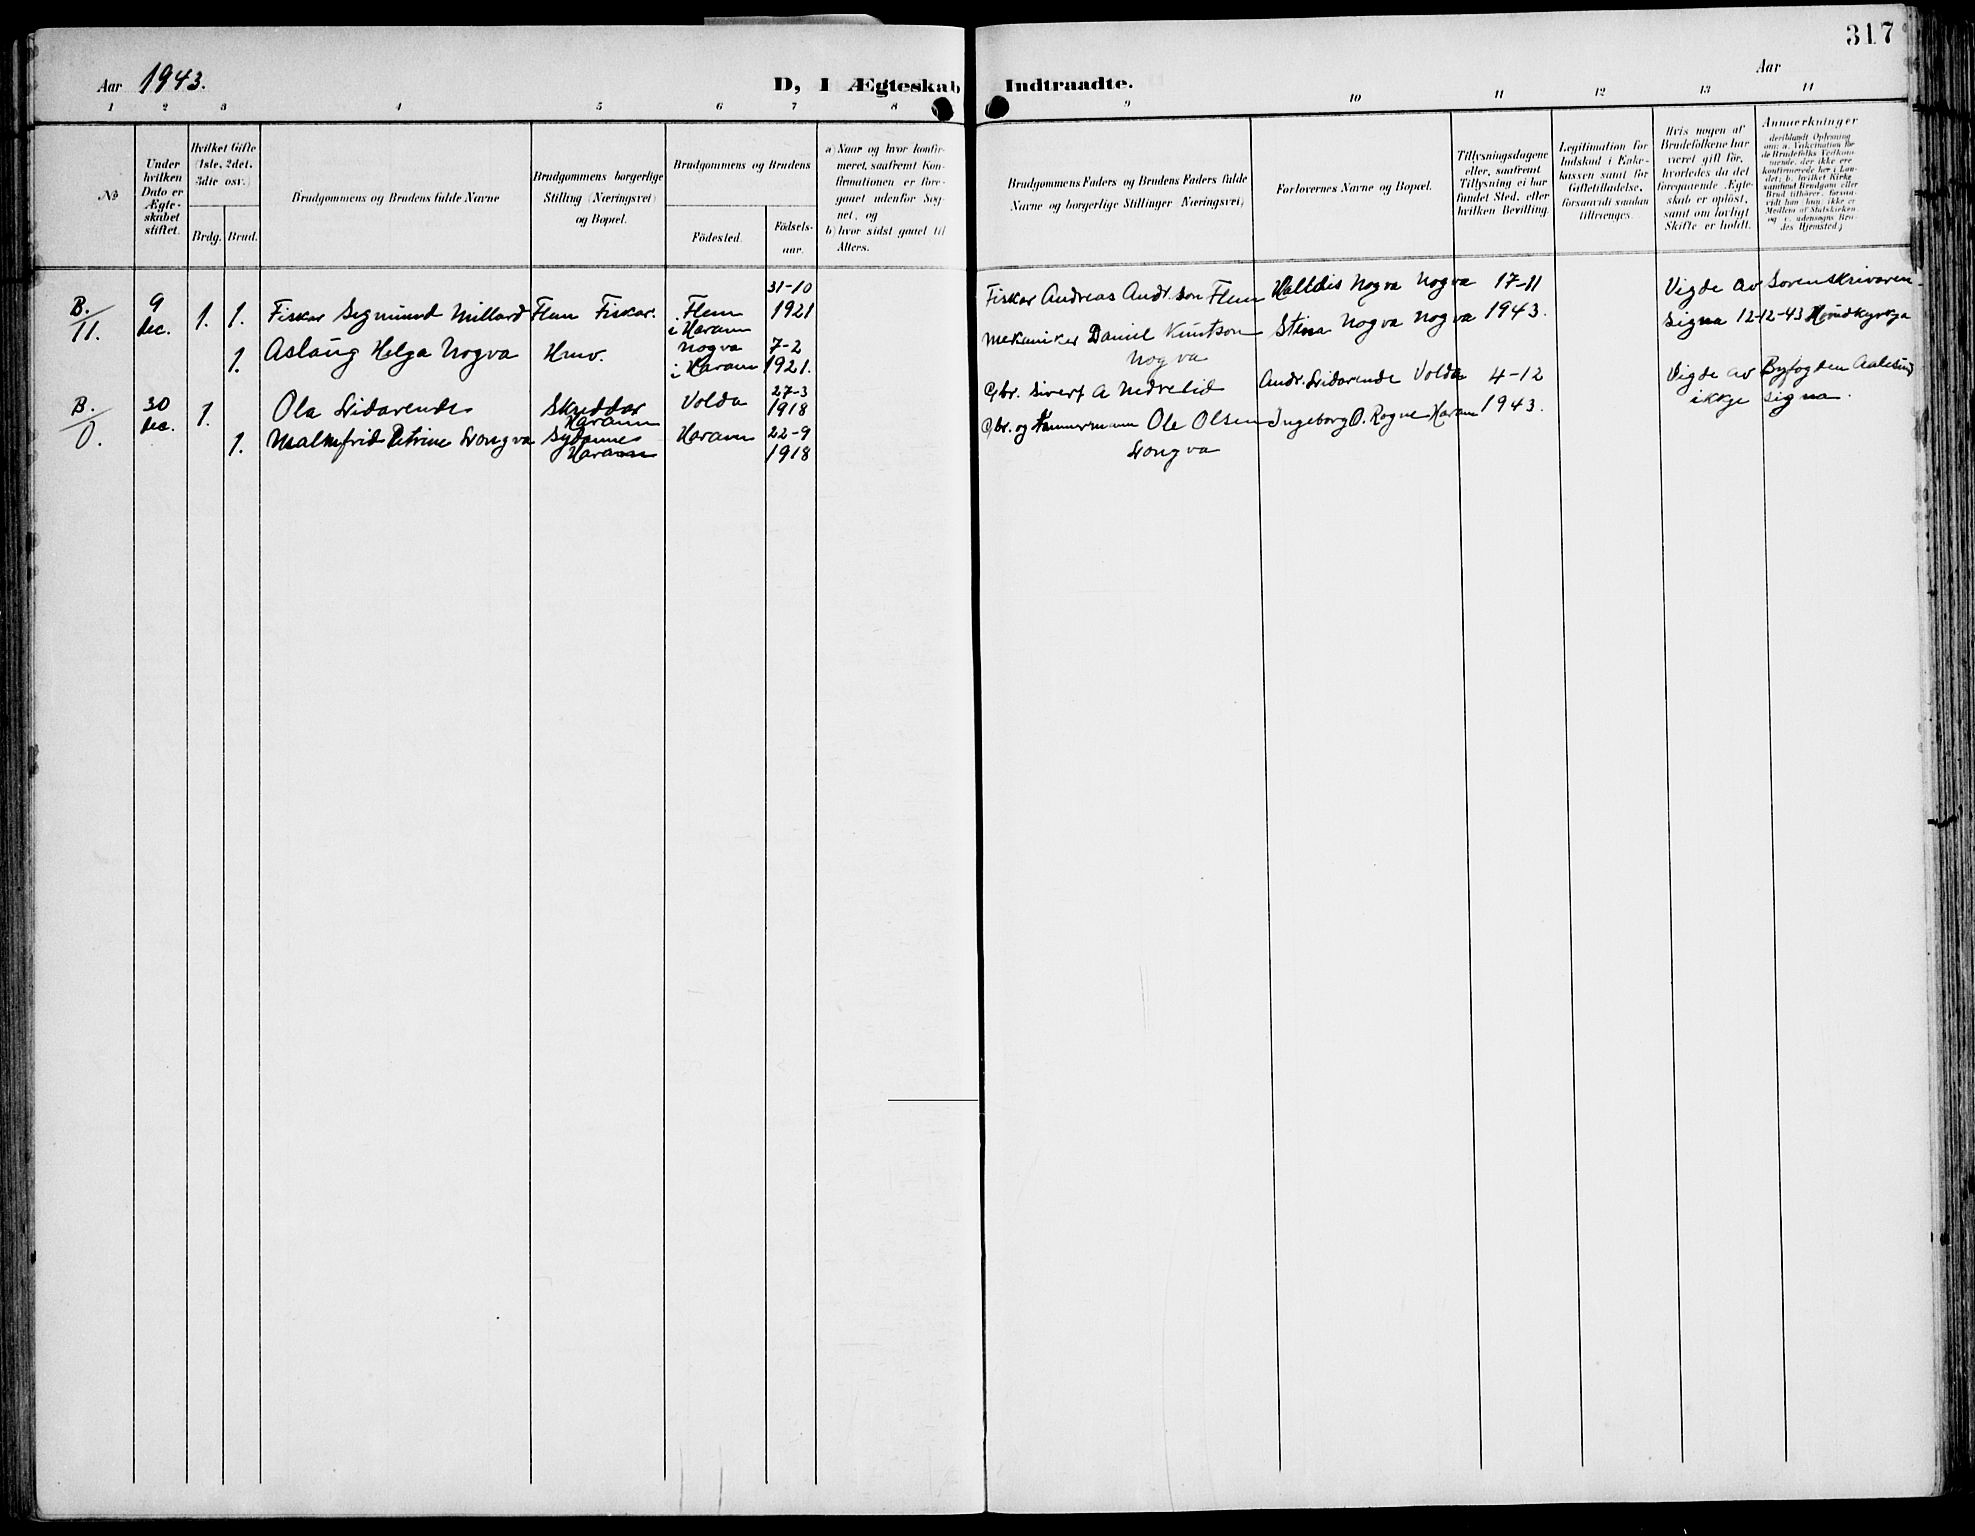 317
Aar 1943.
D, I Ægteskab Indtraadte.
Aar
1 2 3 4 5 6 7 8 9 10 11 12 13 14
No
Under hvilken Dato er Ægteskabet stiftet.
Hvilket Gifte (1ste, 2det, 3die osv.)
Brdg. Brud.
Brudgommens og Brudens fulde Navne
Brudgommens borgerlige Stilling (Næringsvei) og Bopæl.
Brudgommens og Brudens
Födested.
Födsels-aar.
a) Naar og hvor konfirmeret, saafremt Konfirmationen er foregaaet udenfor Sognet, og
b) hvor sidst gaaet til Alters.
Brudgommens Faders og Brudens Faders fulde Navne og borgerlige Stillinger (Næringsvei)
Forlovernes Navne og Bopæl.
Tillysningsdagene eller, saafremt Tillysning ei har fundet Sted, efter hvilken Bevilling.
Legitimation for Indskud i Enkekassen samt for Giftetilladelse, forsaavidt saadan tiltrænges.
Hvis nogen af Brudefolkene har været gift för, hvorledes da det foregaaende Ægteskab er oplöst, samt om lovligt Skifte er holdt.
Anmærkninger
deriblandt Oplysning om: a. Vakcination for de Brudefolks Vedkommende, der ikke ere konfirmerede her i Landet; b. hvilket Kirkesamfund Brudgom eller Brud tilhører, forsaavidt han (hun) ikke er Medlem af Statskirken, og c. udensogns Brudes Hjemsted.)
B./11. 9 dec. 1. 1. Fiskar Sigmund Millard Flem Fiskar. Flem i Haram 31-10 1921 Fiskar Andreas Andr.son Flem Halldis Nogva Nogva 17-11 1943. Vigde av Sorenskrivaren
Signa 12-12-43 Hovudkyrkja
1. Aslaug Helga Nogva Hmv. Nogva i Haram 7-2 1921. Mekaniker Daniel Knutson Nogva Stina Nogva Nogva
B./0. 30 dec. 1. Ola Lidarende Skreddar Haram Volda 27-3 1918 Gbr. Sivert A Nedrelid Andr. Lidarende Volda 4-12 1943. Vigde av Byfogden Aalesund
ikkje signa.
1. Malmfrid Petrine Longva Sydame Haram Haram 22-9 1918 Gbr. og Tømmermann Ole Olsen Longva Ingeborg O. Rogne Haram